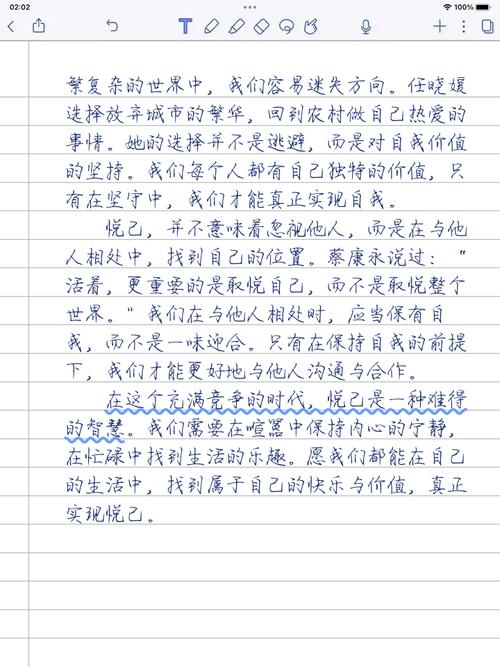 02:02
100%
繁复杂的世界中，我们容易迷失方向。任晓媛
选择放弃城市的繁华，回到农村做自己热爱的
事情。她的选择并不是逃避，而是对自我价值
的坚持。我们每个人都有自己独特的价值，只
有在坚守中，我们才能真正实现自我。
悦己，并不意味着忽视他人，而是在与他
人相处中，找到自己的位置。蔡康永说过：“
活着，更重要的是取悦自己，而不是取悦整个
世界。”我们在与他人相处时，应当保有自
我，而不是一味迎合。只有在保持自我的前提
下，我们才能更好地与他人沟通与合作。
在这个充满竞争的时代，悦己是一种难得
的智慧。我们需要在喧嚣中保持内心的宁静，
在忙碌中找到生活的乐趣。愿我们都能在自己
的生活中，找到属于自己的快乐与价值，真正
实现悦己。